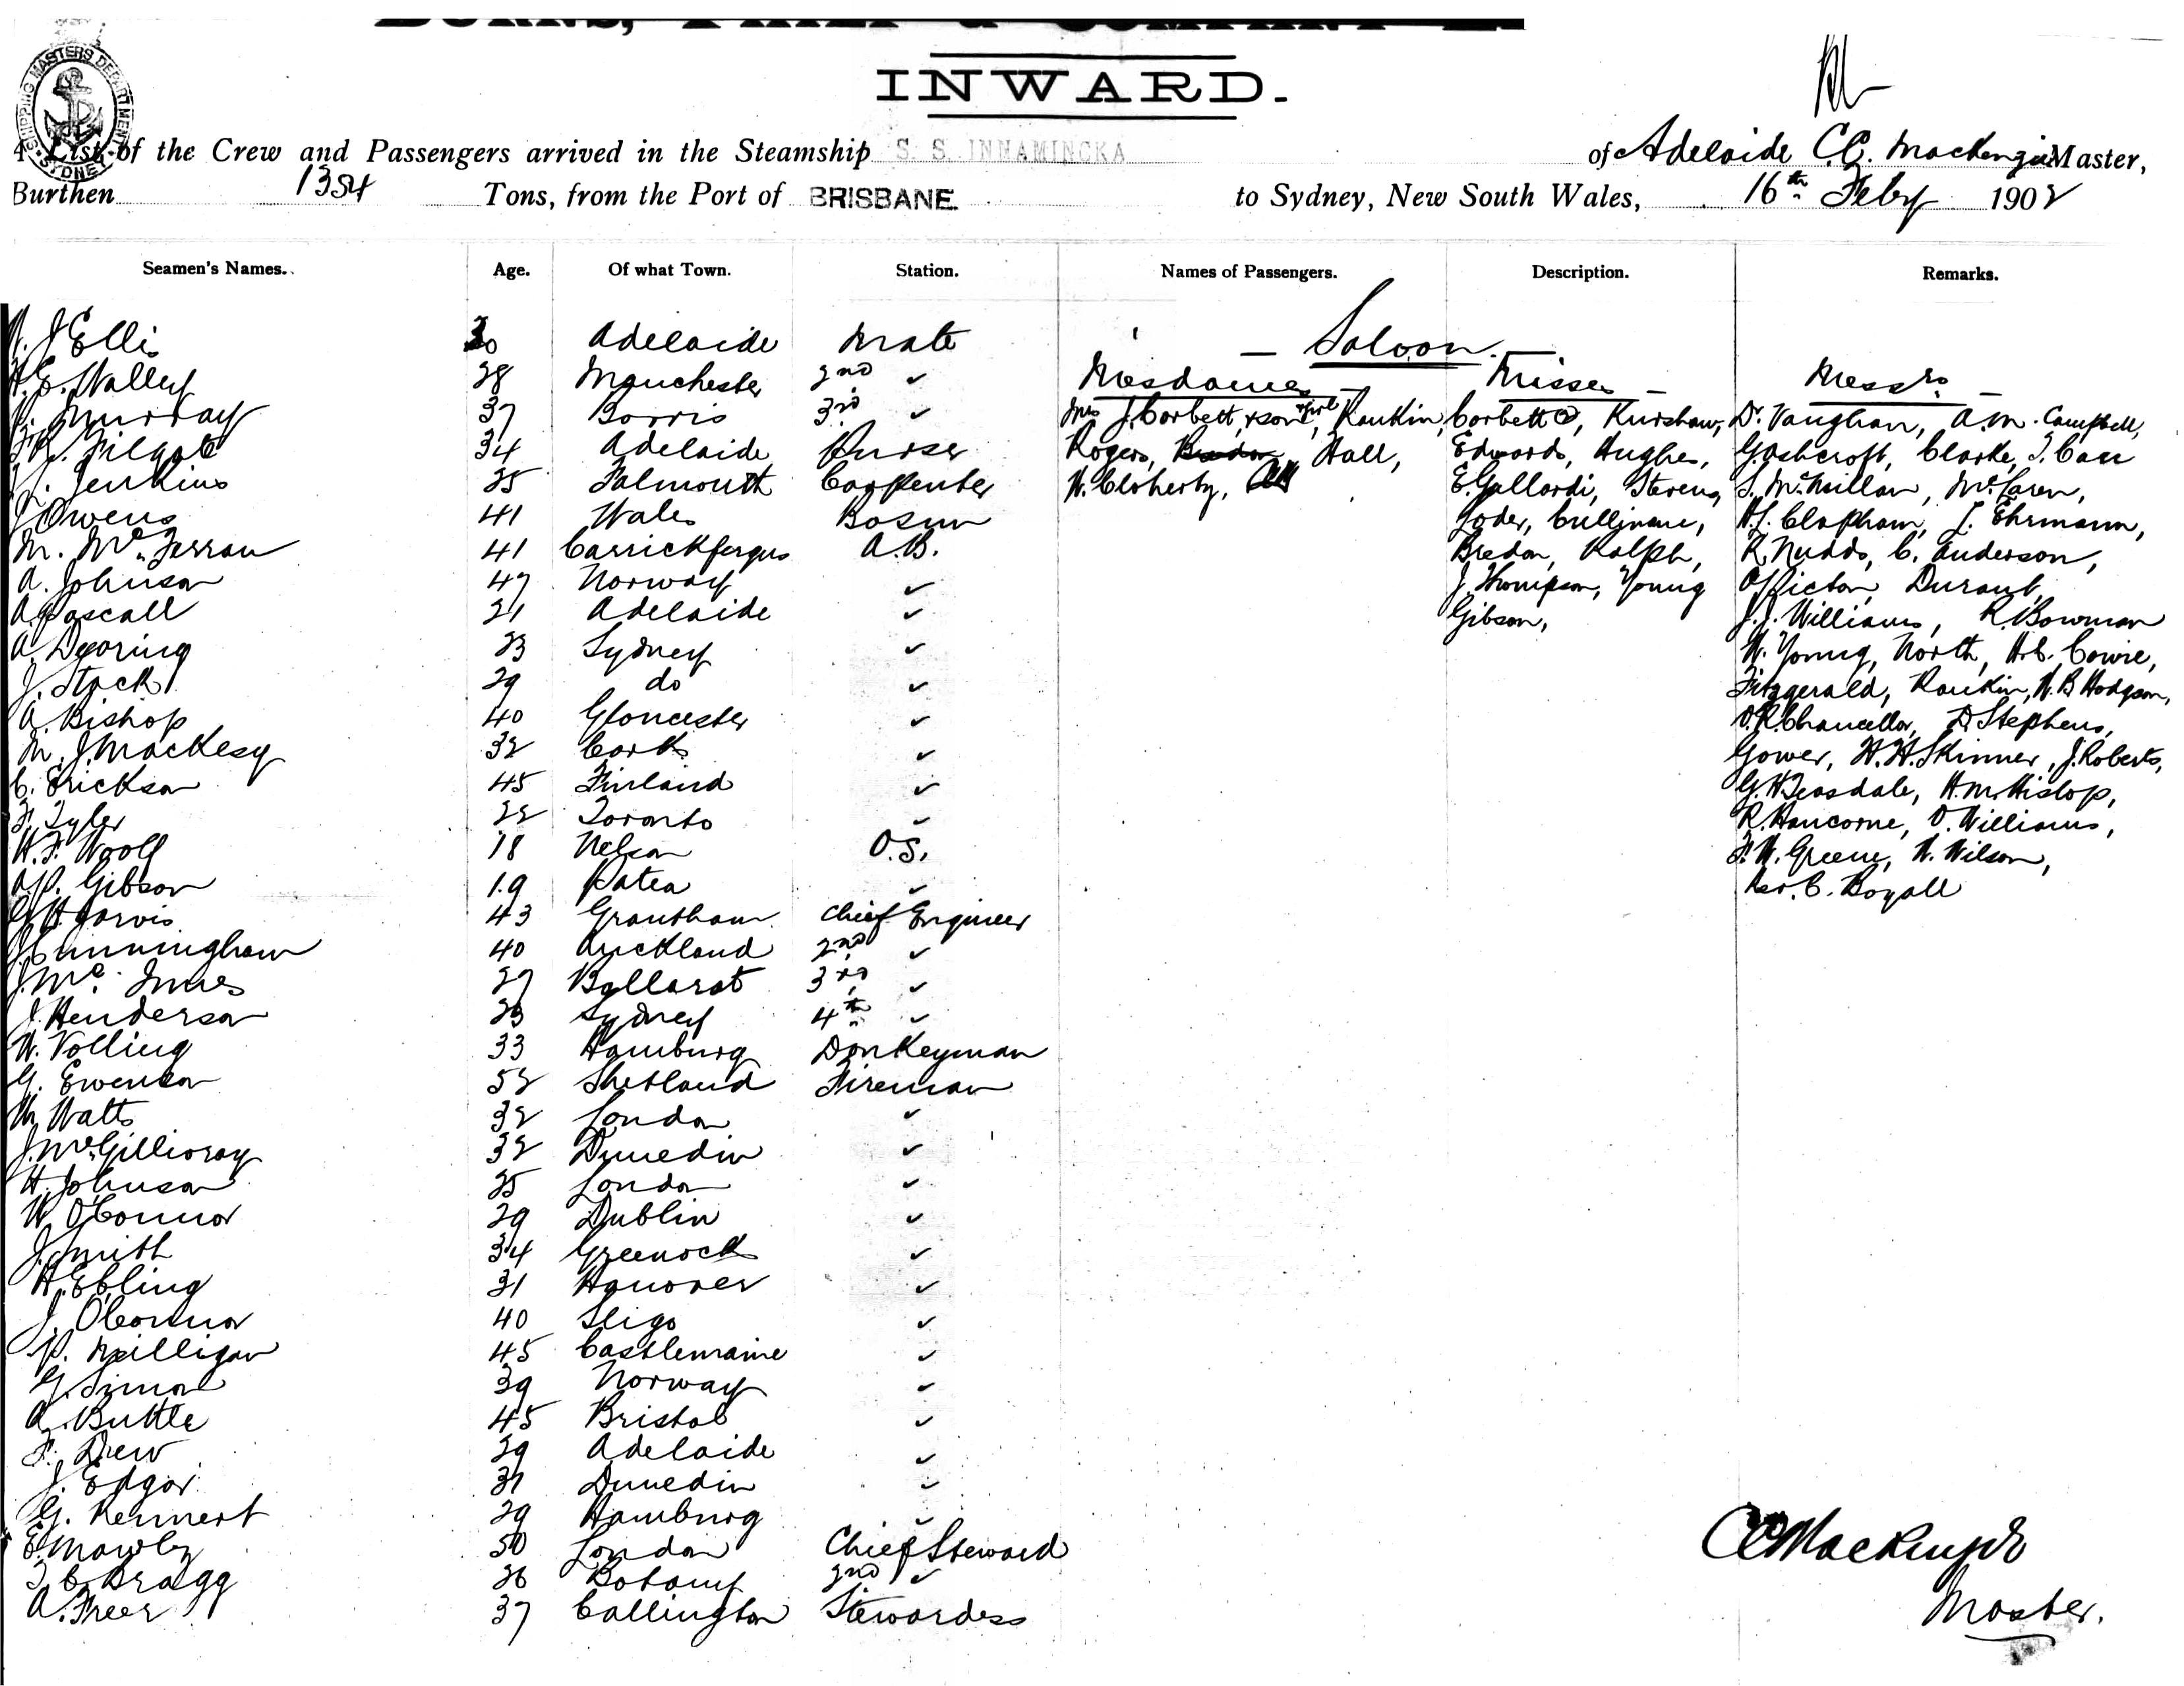 INWARD.
SHIPPING MASTERS DEPARTMENT SYDNEY
List of the Crew and Passengers arrived in the Steamship S. S. INNAMINCKA of Adelaide C.C. Mackenzie Master,
Burthen 1354 Tons, from the Port of BRISBANE to Sydney, New South Wales, 16th Feby 1902
Seamen's Names. Age. Of what Town. Station. Names of Passengers. Description. Remarks.
J Ellis 30 Adelaide Mate — Saloon. —
28 Manchester 2nd ✓ Mesdames — Misses — Messrs
Murray 37 Borris 3rd ✓ Mrs J. Corbett, Rankin, Corbett, Kurshaw, Dr. Vaughan, A.M. Campbell,
34 Adelaide Purser Rogers, Hall, Edwards, Hughes, G. Ashcroft, Clarke,
Jenkins 25 Falmouth Carpenter W. Cloherty, E. Gallardi, Stevens, McMillan, McLaren,
J Owens 41 Wales Bosun Cullinane, Clapham, Ehrmann,
M. McFerran 41 Carrickfergus A.B. Bredon, Ralph, R. Nudds, C. Anderson,
A. Johnson 47 Norway ✓ J. Thompson, Young Officton, Durant,
A. Pascall 21 Adelaide ✓ Gibson, J.J. Williams, R. Bowman
A. Dearing 23 Sydney ✓ W. Young, North, H.C. Cowie,
J. Stack 29 do ✓ Fitzgerald, Rankin, W.B Hodgson,
A. Bishop 40 Gloucester ✓ Chancellor, D Stephens,
M. J. Mackesy 32 Cork ✓ Gower, H.H. Skinner, J. Roberts,
C. Erickson 45 Finland ✓ G.H Teasdale, H.M. Hislop,
F. Tyler 22 Toronto ✓ R. Hancorne, O. Williams,
W.F. Woolf 18 Nelson O.S. F.W. Greene, W. Wilson,
A.P. Gibson 19 Patea ✓ Rev. C. Boyall
G H Jarvis 43 Grantham Chief Engineer
J Cunningham 40 Auckland 2nd ✓
J. McInnes 27 Ballarat 3rd ✓
J. Henderson 23 Sydney 4th ✓
W. Volling 33 Hamburg Donkeyman
G. Ewenson 52 Shetland Fireman
Watts 32 London ✓
J. McGillivray 32 Dunedin ✓
H. Johnson 25 London ✓
W O'Connor 29 Dublin ✓
J. Smith 34 Greenock ✓
H. Ebling 31 Hanover ✓
J. O'Connor 40 Sligo ✓
P. Milligan 45 Castlemaine ✓
G. Simon 39 Norway ✓
A. Buttle 45 Bristol ✓
F. Drew 29 Adelaide ✓
J. Edgar 31 Dunedin ✓
G. Rennert 29 Hamburg ✓
E. Mowley 50 London Chief Steward CC Mackenzie
T. C. Bragg 26 Botany 2nd ✓
A. Freer 37 Callington Stewardess Master.